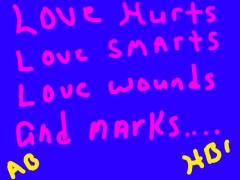 Love Hurts
Love smarts
Love wounds
and marks....
AB HB'